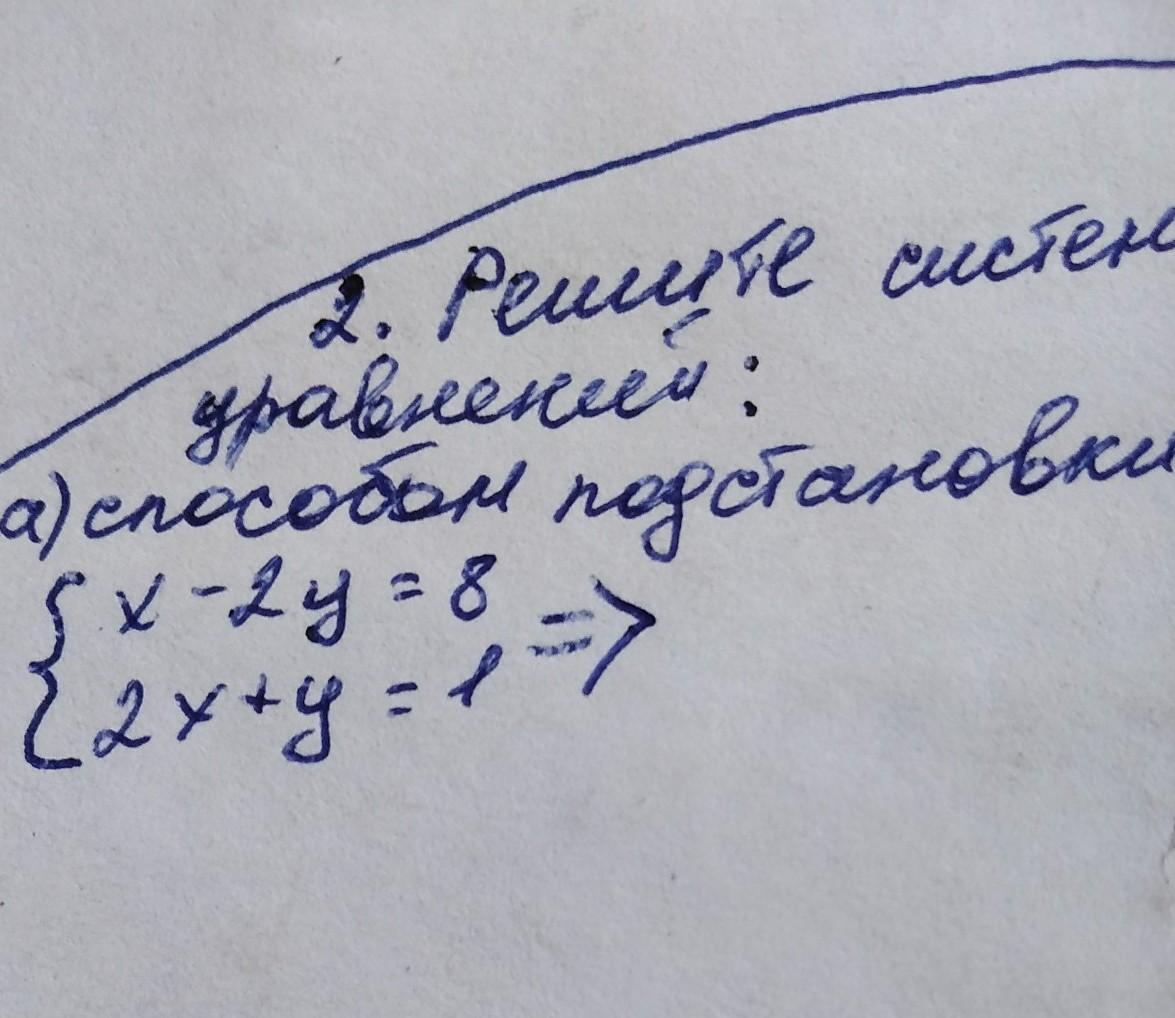 2. Решите систем
уравнений:
а) способом подстановки
{ x - 2y = 8 =>
{ 2x + y = 1